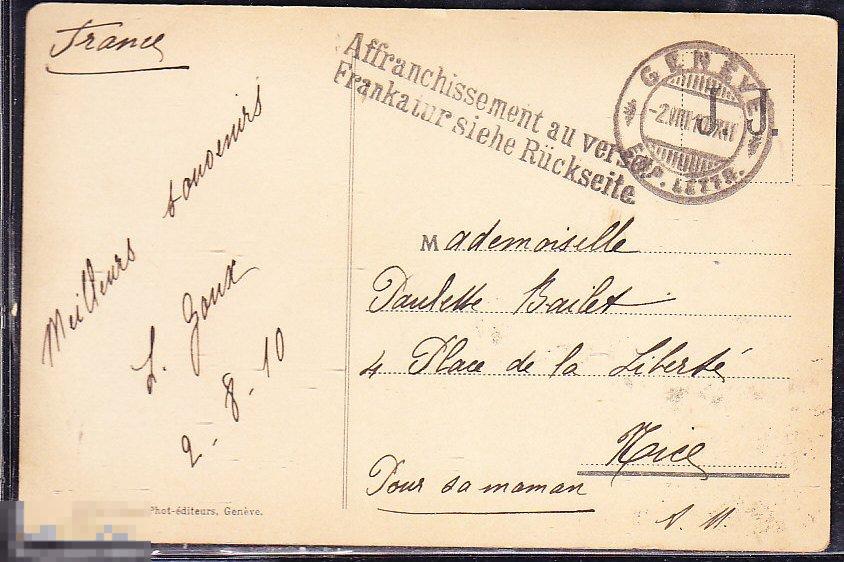 France
Affranchissement au verso.
Frankatur siehe Rückseite.
GENÈVE
-2.VIII.10
EXP. LETTR.
J.J.
Meilleurs souvenirs
L. Joux
2-8-10
Mademoiselle
Paulette Bailet
4 Place de la Liberté
Nice
Pour sa maman
A. M.
Phot-éditeurs, Genève.